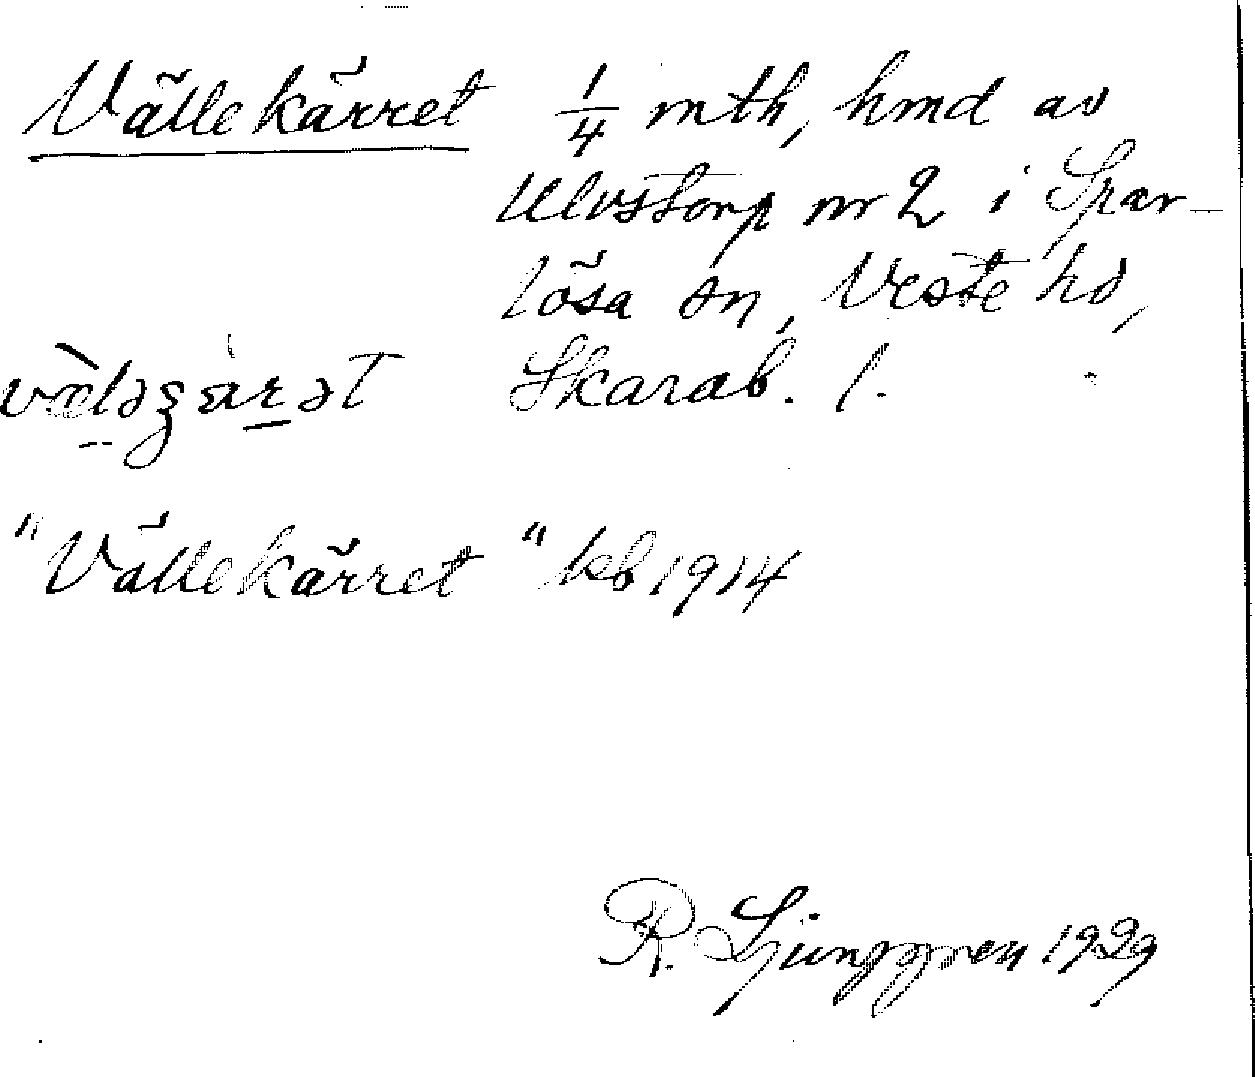 Vällekärret 1/4 mth, hmd av
Ulvstorp nr 2 i Spar-
lösa sn, Viste hd,
Skarab. l.
"Vällekärret" kb 1914
R. Ljunggren 1929